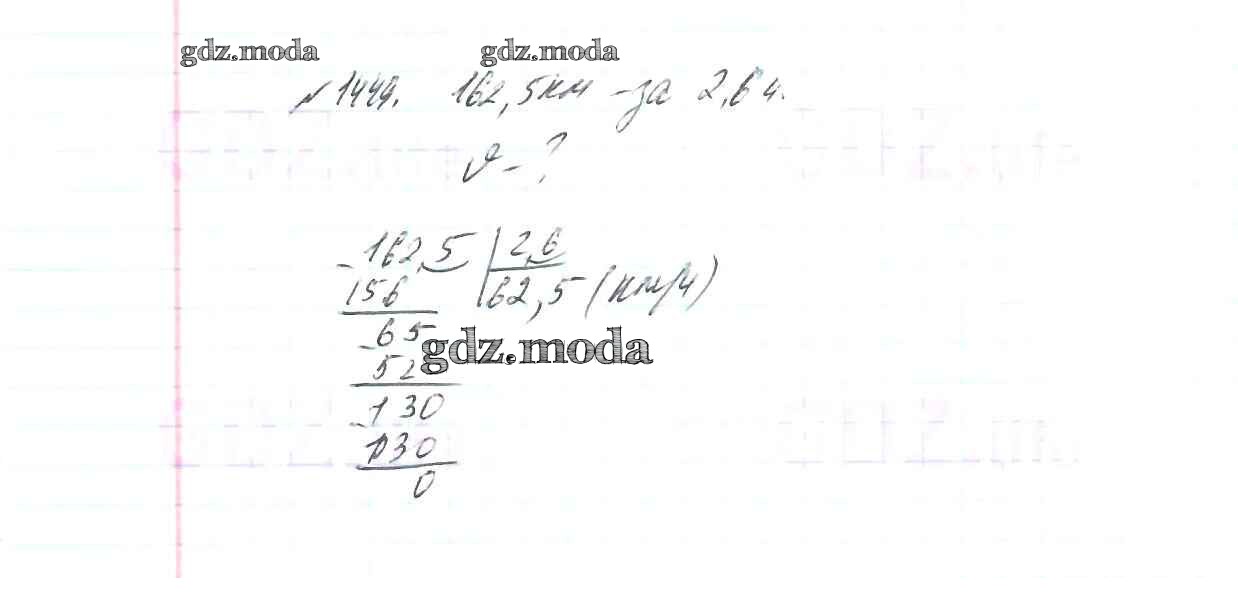 gdz.moda gdz.moda
№1449. 162,5км - за 2,6 ч.
v - ?
- 162,5 | 2,6
156 62,5 (км/ч)
- 65
gdz.moda
52
- 130
130
0